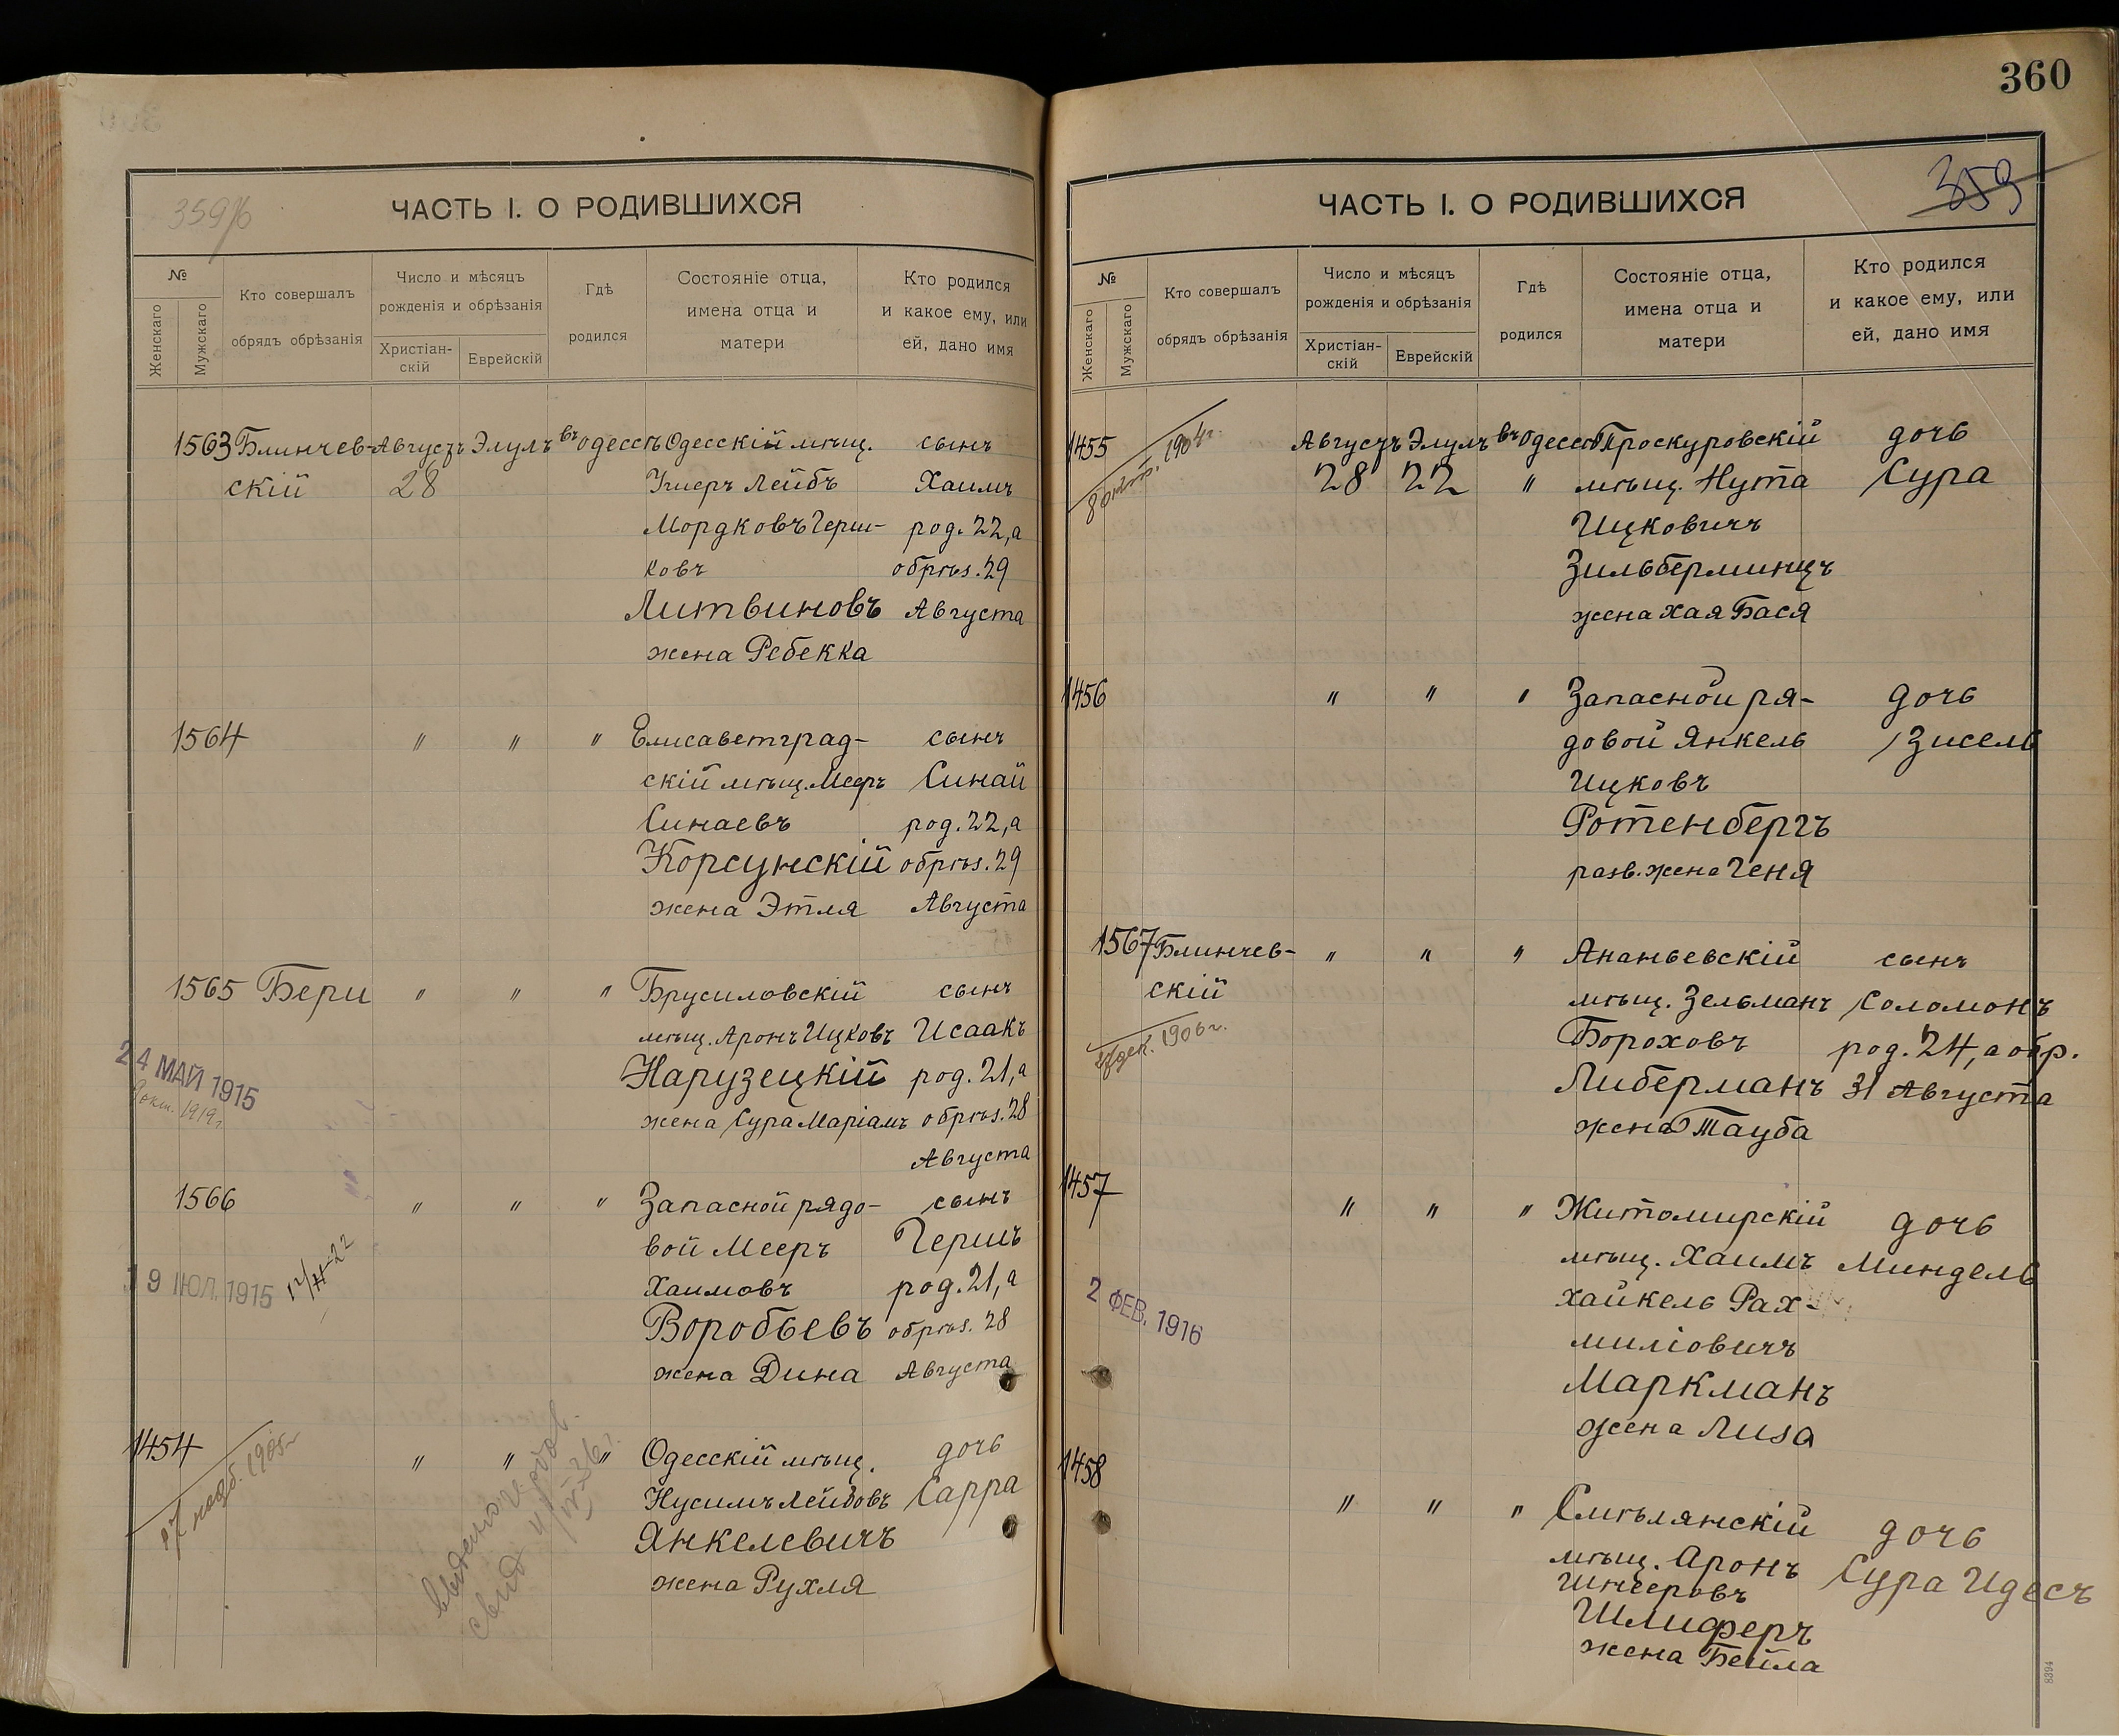 360
359/б
ЧАСТЬ I. О РОДИВШИХСЯ
№
Женскаго
Мужскаго
Кто совершалъ
обрядъ обрѣзанія
Число и мѣсяцъ
рожденія и обрѣзанія
Христіан-
скій
Еврейскій
Гдѣ
родился
Состояніе отца,
имена отца и
матери
Кто родился
и какое ему, или
ей, дано имя
1563 Блинчев- Августъ Элулъ въ Одессѣ Одесскій мѣщ. сынъ
скій 28 Ушеръ Лейбъ Хаимъ
Мордковъ Герш- род. 22, а
ковъ обрѣз. 29
Литвиновъ Августа
жена Ребекка
1564 " " " Елисаветград- сынъ
скій мѣщ. Мееръ Синай
Синаевъ род. 22, а
Корсунскій обрѣз. 29
жена Этля Августа
1565 Бери " " " Брусиловскій сынъ
мѣщ. Аронъ Ицковъ Исаакъ
24 МАЙ 1915 Нарузецкій род. 21, а
9 окт. 1919 г. жена Сура Маріамъ обрѣз. 28
Августа
1566 " " " Запасной рядо- сынъ
вой Мееръ Гершъ
19 ІЮЛ. 1915 Хаимовъ род. 21, а
Воробьевъ обрѣз. 28
жена Дина Августа
1454 " " " Одесскій мѣщ. дочь
Нусимъ Лейбовъ Сарра
Янкелевичъ
жена Рухля
ЧАСТЬ I. О РОДИВШИХСЯ
359
№
Женскаго
Мужскаго
Кто совершалъ
обрядъ обрѣзанія
Число и мѣсяцъ
рожденія и обрѣзанія
Христіан-
скій
Еврейскій
Гдѣ
родился
Состояніе отца,
имена отца и
матери
Кто родился
и какое ему, или
ей, дано имя
1455 Августъ Элулъ въ Одессѣ Проскуровскій дочь
28 22 " мѣщ. Нута Сура
Ицковичъ
Зильберминцъ
жена Хая Бася
1456 " " " Запасной ря- дочь
довой Янкель Зисель
Ицковъ
Ротенбергъ
разв. жена Геня
1567 Блинчев- " " " Ананьевскій сынъ
скій мѣщ. Зельманъ Соломонъ
дек. 1906 г. Бороховъ род. 24, а обр.
Либерманъ 31 Августа
жена Тауба
1457 " " " Житомирскій дочь
мѣщ. Хаимъ Миндель
2 ФЕВ. 1916 Хайкель Рах-
миліовичъ
Маркманъ
жена Лиза
1458 " " " Смѣлянскій дочь
мѣщ. Аронъ Сура Идесъ
Шлиферъ
жена Бейла
8394